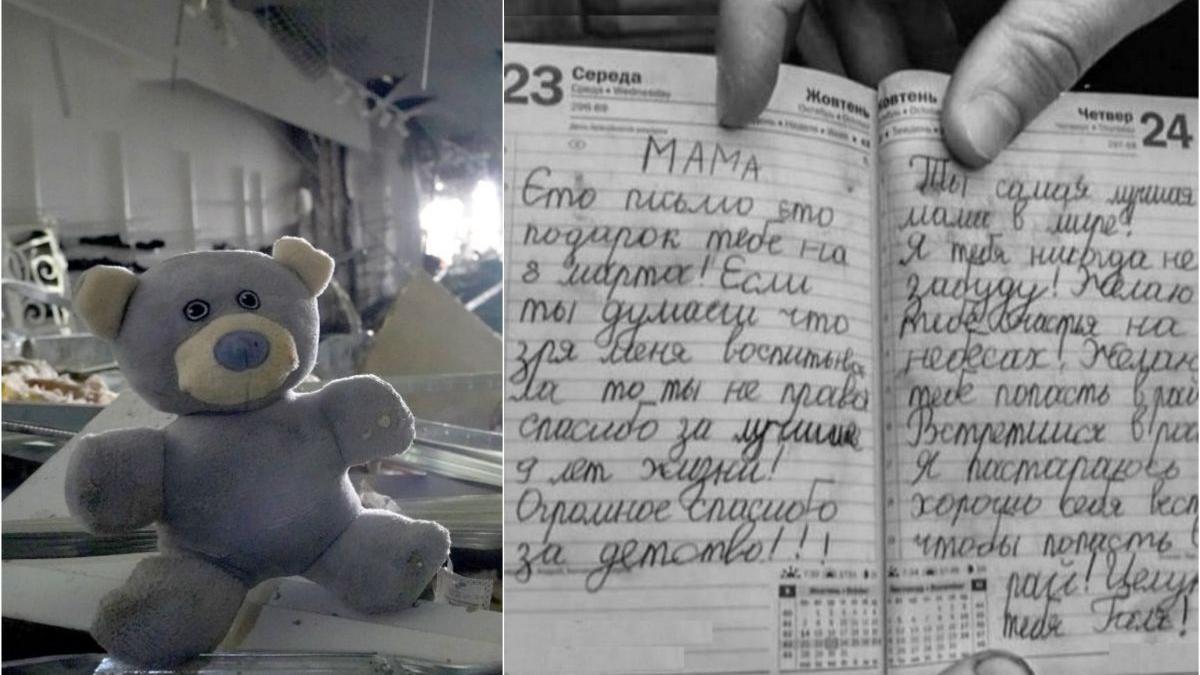 23 Середа
Среда • Wednesday
296-69
Жовтень
МАМА
Єто письмо это
подарок тебе на
8 марта! Если
ты думаеш что
зря меня воспитыва
ла то ты не права
спасибо за лучшие
9 лет жизни!
Огромное спасибо
за детство!!!
Жовтень
Четвер 24
Четверг • Thursday
297-68
Ты самая лучшая
мама в мире!
Я тебя никогда не
забуду! Желаю
тебе счастья на
небесах! Желаю
тебе попасть в рай
Встретимся в раю
Я пастараюсь
хорошо себя вест
чтобы попасть в
рай! Целую
тебя Галя!